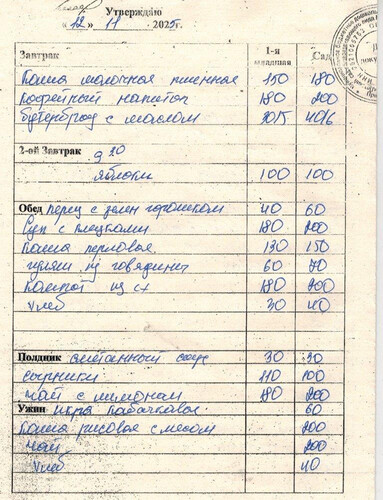 Утверждаю
« 12 » 11 2025г.
Завтрак 1-я младшая Сад
Каша молочная пшенная 150 180
Кофейный напиток 180 200
Бутерброд с маслом 30/5 40/6
2-ой Завтрак 9 20
яблоки 100 100
Обед перец с зелен горошком 40 60
Суп с клецками 180 200
Каша перловая 130 150
гуляш из говядины 60 70
Компот из с/х 180 200
хлеб 30 40
Полдник сметанный соус 30 30
сырники 110 100
чай с лимоном 180 200
Ужин икра кабачковая 60
Каша рисовая с мясом 200
чай 200
хлеб 40